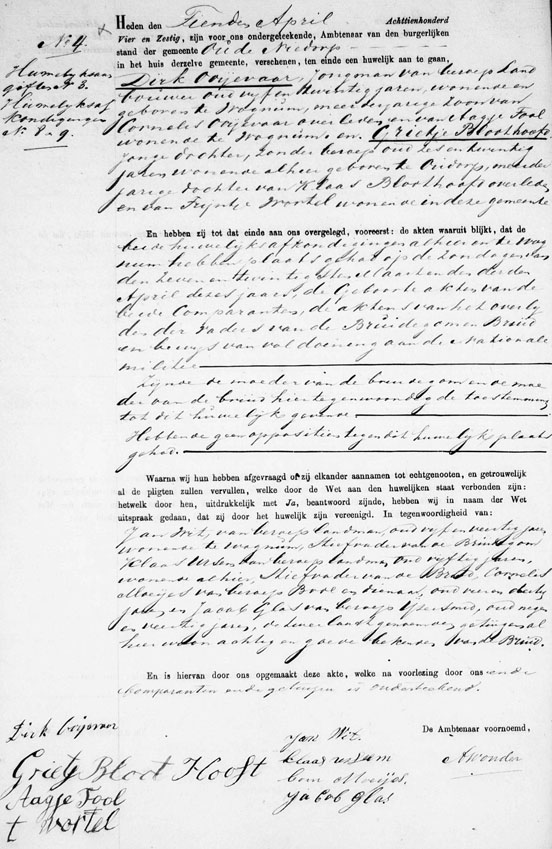 Nº 4.
Huwelijksaan
giften N. 3.
Huwelijksaf
kondigingen
N. 8 & 9.
Heden den Tienden April Achttienhonderd
Vier en Zestig, zijn voor ons ondergeteekende, Ambtenaar van den burgerlijken
stand der gemeente Oude Niedorp
in het huis derzelve gemeente, verschenen, ten einde een huwelijk aan te gaan,
Dirk Ooijevaar, Jongman van beroep Land
bouwer oud vijf en twintig jaren, wonende en
geboren te Wognum, meerderjarige zoon van
Cornelis Ooijevaar overleden en van Aagje Fool
wonende te Wognum en Grietje Bloothoofd
jonge dochter, zonder beroep oud zes en twintig
jaren wonende alhier geboren te Oudorp, meerder
jarige dochter van Klaas Bloothoofd overleden
en van Trijntje Wortel wonende in deze gemeente
En hebben zij tot dat einde aan ons overgelegd, vooreerst: de akten waaruit blijkt, dat de
beide huwelijks afkondigingen alhier en te Wog
num hebben plaats gehad op de zondagen van
den zeven en twintigsten Maart en den derden
April dezes jaars, de Geboorte akten van de
beide Comparanten, de aktens van het overlij
den der vaders van de Bruidegom en Bruid
en bewijs van voldoening aan de Nationale
militie
Zijnde de moeder van de bruidegom en de moe
der van de bruid hier tegenwoordig de toestemming
tot dit huwelijk gevende
Hebbende geen oppositie tegen dit huwelijk plaats
gehad.
Waarna wij hun hebben afgevraagd of zij elkander aannamen tot echtgenooten, en getrouwelijk
al de pligten zullen vervullen, welke door de Wet aan den huwelijken staat verbonden zijn:
hetwelk door hen, uitdrukkelijk met Ja, beantwoord zijnde, hebben wij in naam der Wet
uitspraak gedaan, dat zij door het huwelijk zijn vereenigd. In tegenwoordigheid van:
Jan Wit, van beroep landman, oud vijf en veertig jaren
wonende te Wognum, Stiefvader van de Bruidegom
Klaas Ursem van beroep landman oud vijftig jaren,
wonende alhier, Stiefvader van de Bruid, Cornelis
Moeijes van beroep Bode en dienaar, oud vier en dertig
jaren, en Jacob Glas van beroep IJzersmid, oud negen
en veertig jaren, de twee laatstgenoemde getuigen al
hier woonachtig en goede bekenden van de Bruid.
En is hiervan door ons opgemaakt deze akte, welke na voorlezing door ons en de
Comparanten en de getuigen is onderteekend.
De Ambtenaar voornoemd,
Dirk Ooijevaar
Grietje Bloot Hooft
Aagje Fool
t Wortel
Jan Wit
Claas Ursem
Corn Moeijes
Jacob Glas
A Wonder